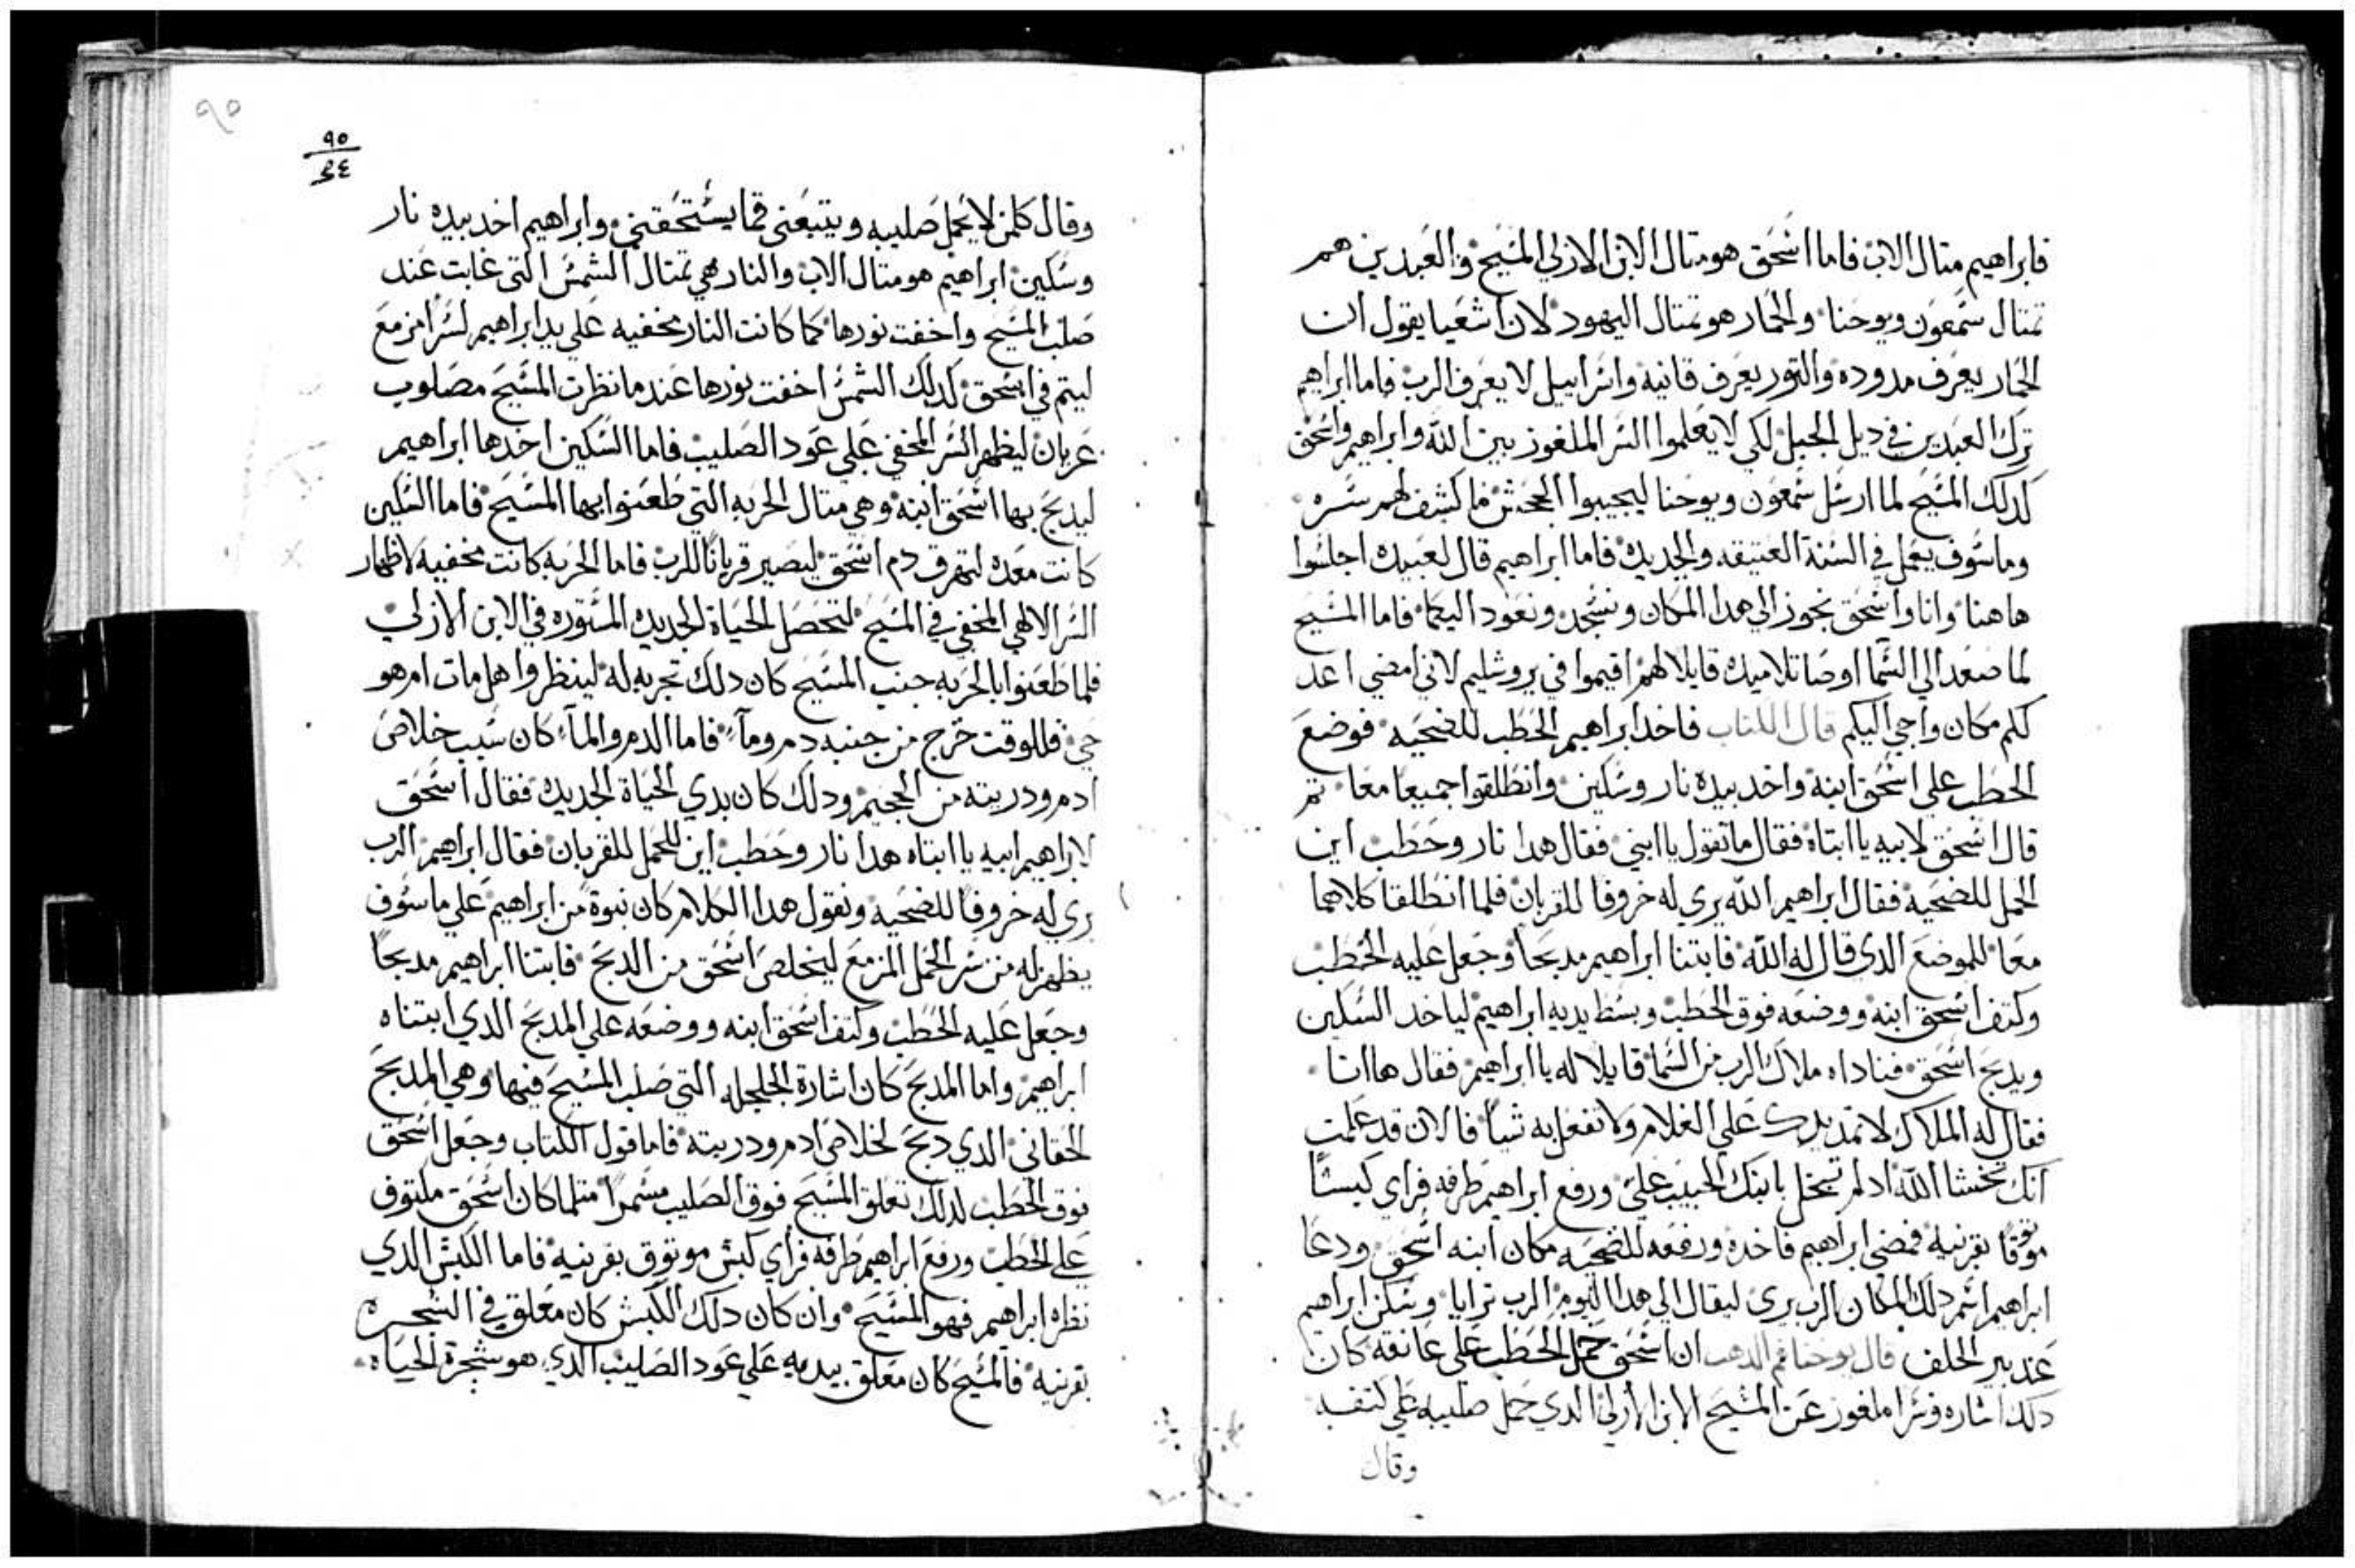 فابراهيم متال الاب فاما اسحق هو متال الابن الازلي المسيح والعبدين هم
تمتال سمعون ويوحنا والحمار هو تمتال اليهود لان اشعيا يقول ان
الحمار يعرف مدوده والتور يعرف قانيه واسراييل لا يعرف الرب فاما ابراهيم
ترك العبدين في ديل الجبل لكي لا يعلموا السر الملغوز بين الله وابراهيم واسحق
كدلك المسيح لما ارسل سمعون ويوحنا ليجيبوا الجحش فما كشف لهم سره
وما سوف يعمل في السنة العتيقه والجديده فاما ابراهيم قال لعبيده اجلسوا
هاهنا وانا واسحق نجوز الي هدا المكان ونسجد ونعود اليكما فاما المسيح
لما صعد الي السما اوصا تلاميده قايلا لهم اقيموا في يروشليم لاني امضي اعد
لكم مكان واجي اليكم قال الكتاب فاخد ابراهيم الحطب للضحيه فوضع
الحطب علي اسحق ابنه واخد بيده نار وسكين وانطلقوا جميعا معا تم
قال اسحق لابيه يا ابتاه فقال ما تقول يا ابني فقال هدا نار وحطب اين
الحمل للضحية فقال ابراهيم الله يري له خروفا للقربان فلما انطلقا كلاهما
معا للموضع الدي قال له الله فابتنا ابراهيم مدبحا وجعل عليه الحطب
وكتف اسحق ابنه ووضعه فوق الحطب وبسط يديه ابراهيم لياخد السكين
ويدبح اسحق فناداه ملاك الرب من السما قايلا له يا ابراهيم فقال ها انا
فقال له الملاك لا تمد يدك علي الغلام ولا تفعل به شيا فالان قد علمت
انك تخشا الله اد لم تبخل بابنك الحبيب علي ورفع ابراهيم طرفه فراي كبسا
موتوقا بقرنيه فمضي ابراهيم فاخده ورفعه للضحيه مكان ابنه اسحق ودعا
ابراهيم اسم دلك المكان الرب يري ليقال الي هدا اليوم الرب ترايا وسكن ابراهيم
عند بير الحلف قال يوحنا فم الدهب ان اسحق حمل الحطب علي عاتقه كان
دلك اشاره وسرا ملغوز عن المسيح الابن الازلي الدي حمل صليبه علي كتفه
وقال
٩٥
٩٥
٣٤
وقال كلمن لا يحمل صليبه ويتبعني فما يستحقني وابراهيم اخد بيده نار
وسكين ابراهيم هو متال الاب والنار هي تمتال الشمس التي غابت عند
صلب المسيح واخفت نورها كما كانت النار مخفيه علي يد ابراهيم لسرا مزمع
ليتم في اسحق كدلك الشمس اخفت نورها عند ما نظرت المسيح مصلوب
عريان ليظهر السر المخفي علي عود الصليب فاما السكين اخدها ابراهيم
ليدبح بها اسحق ابنه وهي متال الحربه التي طعنوا بها المسيح فاما السكين
كانت معده لتهرق دم اسحق ليصير قربانا للرب فاما الحربه كانت مخفيه لاظهار
السر الالهي المخفي في المسيح لتحصل الحياة الجديده المستوره في الابن الازلي
فلما طعنوا بالحربه جنب المسيح كان دلك تجربه له لينظروا هل مات ام هو
حي فللوقت خرج من جنبه دم وماء فاما الدم والماء كان سبب خلاص
ادم ودريته من الجحيم ودلك كان بدي الحياة الجديده فقال اسحق
لابراهيم ابيه يا ابتاه هدا نار وحطب اين الحمل للقربان فقال ابراهيم الرب
يري له خروفا للضحيه ونقول هدا الكلام كان نبوة من ابراهيم علي ما سوف
يظهر له من سر الحمل المزمع ليخلص اسحق من الدبح فابتنا ابراهيم مدبحا
وجعل عليه الحطب وكتف اسحق ابنه ووضعه علي المدبح الدي ابتناه
ابراهيم واما المدبح كان اشارة الجلجله التي صلب المسيح فيها وهي المدبح
الحقاني الدي دبح لخلاص ادم ودريته فاما قول الكتاب وجعل اسحق
فوق الحطب لدلك تعلق المسيح فوق الصليب مسمرا متلما كان اسحق مكتوف
علي الحطب ورفع ابراهيم طرفه فراي كبش موتوق بقرنيه فاما الكبش الدي
نظره ابراهيم فهو المسيح وان كان دلك الكبش كان معلق في الشجره
بقرنيه فالمسيح كان معلق بيديه علي عود الصليب الدي هو شجرة الحياه